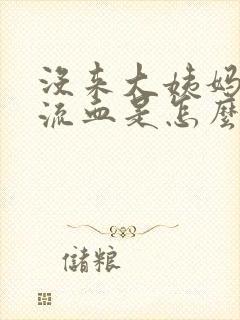 没来大姨妈
流血是怎麼
儲粮